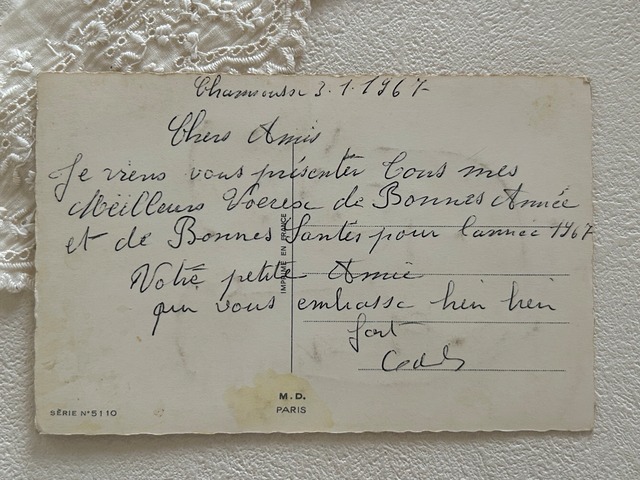 3.1.1967
Chers Amis
Je viens vous présenter tous mes
Meilleurs Voeux de Bonnes Année
et de Bonnes Santés pour l'année 1967
Votre petite Amie
qui vous embrasse bien bien
fort
IMPRIMÉ EN FRANCE
M.D.
PARIS
SÉRIE N°5110